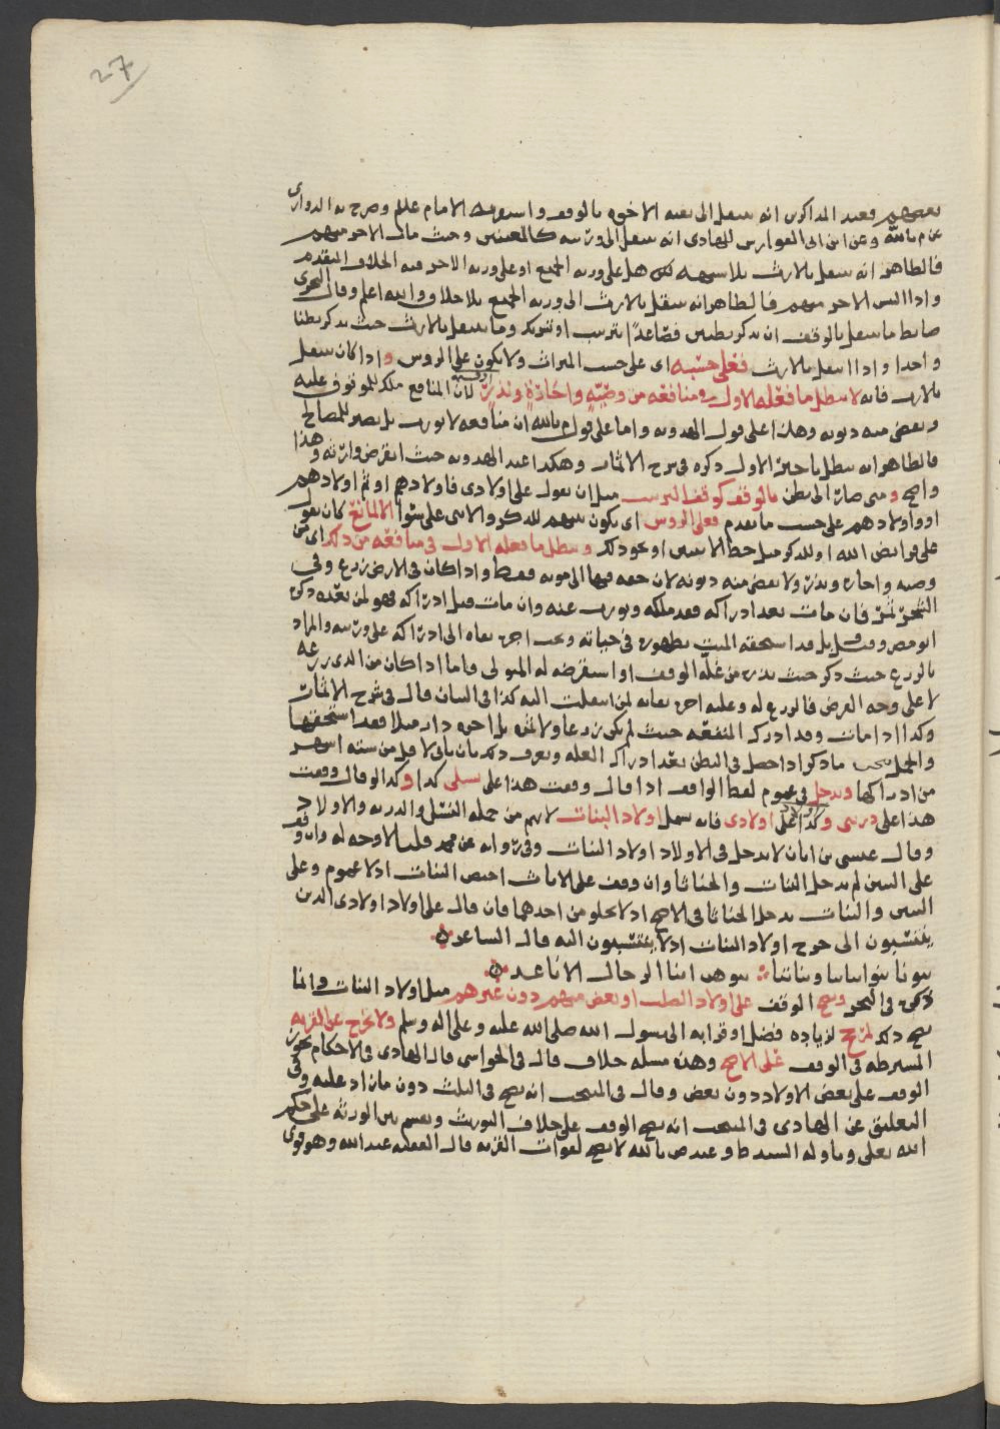 27
بعضهم فعند المذاكرين انه ينتقل الى بقية الاخوة بالوقف واستقر به الامام علم وصرح به الدواري
عن م بالله وعن ابن ابي الفوارس للهادي انه ينتقل الى ورثته كالمعينين وحيث مات الاخر منهم
فالظاهر انه ينتقل بالارث بلا شبهة لكن هل على ورثة الجميع او على ورثة الاخر فيه الخلاف المتقدم
واذا التبس الاخر منهم فالظاهر انه ينتقل بالارث الى ورثة الجميع بلا خلاف والله اعلم وقال النجري
ضابط ما ينتقل بالوقف ان يذكر بطنين فصاعدًا بترتيب او تشريك وما ينتقل بالارث حيث يذكر بطنا
واحدا واذا انتقل بالارث فعلى حسبه اى على حسب الميراث ولا يكون على الروس واذا كان ينتقل
بالارث فانه لا يبطل ما فعله الاول في منافعه من وصية واجارة ونذر لان المنافع ملك للموقوف عليه
ويقضى منه ديونه وهذا على قول الهدوية واما على قول م بالله ان منافعه لا تورث بل تصير للمصالح
فالظاهر انه يبطل تاجير الاول ذكره في شرح الاثمار وهكذا عند الهدوية حيث انقرض وارثه وهذا
واضح ومتى صار الى بطن بالوقف كوقف الترتيب مثل ان يقول على اولادى فاولادهم او ثم اولادهم
او واولادهم على حسب ما تقدم فعلى الروس اى يكون بينهم للذكر والانثى على سوا الا لمانع كان يقول
على فرايض الله او للذكر مثل حظ الانثيين او نحو ذلك ويبطل ما فعله الاول في منافعه من ذلك اى من
وصية واجارة ونذر ولا يقضى منه ديونه لان حقه فيها الى موته فقط واذا كان في الارض زرع وفي
الشجر ثمر فان مات بعد ادراكه فقد ملكه ويورث عنه وان مات قبل ادراكه فهو لمن بعده ذكره
ابو مضر وقيل بل قد استحقه الميت بظهوره في حياته وتجب اجرة بقاه الى ادراكه على ورثته والمراد
بالزرع حيث ذكر حيث بذره من غلة الوقف او استقرضه له المتولى فاما اذا كان من الذى زرعه
لا على وجه القرض فالزرع له وعليه اجرة بقايه لمن انتقلت اليه كذا في البيان قال في شرح الاثمار
وكذا اذا مات وقد ادركه المنفعة حيث لم يكن زرعا ولا ثمرة بل اجرة دار مثلا فقد استحقها
والحمل ما ذكر اذا حصل في البطن بعد ادراك الغلة ويعرف ذلك بان ياتى لاقل من ستة اشهر
من ادراكها ويدخل في عموم لفظ الواقف اذا قال وقفت هذا على نسلى كذا وكذا لو قال وقفت
هذا على ذريتى وكذا على اولادى فانه يشمل اولاد البنات لانهم من جملة النسل والذرية والاولاد
وقال عيسى بن ابان لا يدخل في الاولاد اولاد البنات وفي رواية عن محمد قلنا لا وجه له وان وقف
على البنين لم يدخل البنات والخناثا وان وقف على الاناث اختص البنات اذ لا عموم وعلى
البنين والبنات يدخل الخناثا في الاصح اذ لا يخلو من احدهما فان قال على اولاد اولادى الذين
ينتسبون الى خرج اولاد البنات اذ لا ينتسبون اليه قال الشاعر
بنونا بنو ابنائنا وبناتنا بنوهن ابنا الرجال الاباعد
ذكره في البحر ويصح الوقف على اولاد الصلب او بعض منهم دون غيرهم مثل اولاد البنات وانما
يصح ذلك لمرجح لزيادة فضل او قرابة الى رسول الله صلى الله عليه وعلى اله وسلم ولا يخرج عن القربة
المشترطة في الوقف على الاصح وهذه مسئلة خلاف قال في الحواشى قال الهادى في الاحكام يجوز
الوقف على بعض الاولاد دون بعض وقال في المنتخب انه يصح في الثلث دون ما زاد عليه وفي
التعليق عن الهادى في المنتخب انه يصح الوقف على خلاف التوريث ويقسم بين الورثة على حكم
الله تعالى وتاوله السيد ط وعند ص بالله لا يصح لفوات القربة قال الفقيه عبد الله وهو قوى